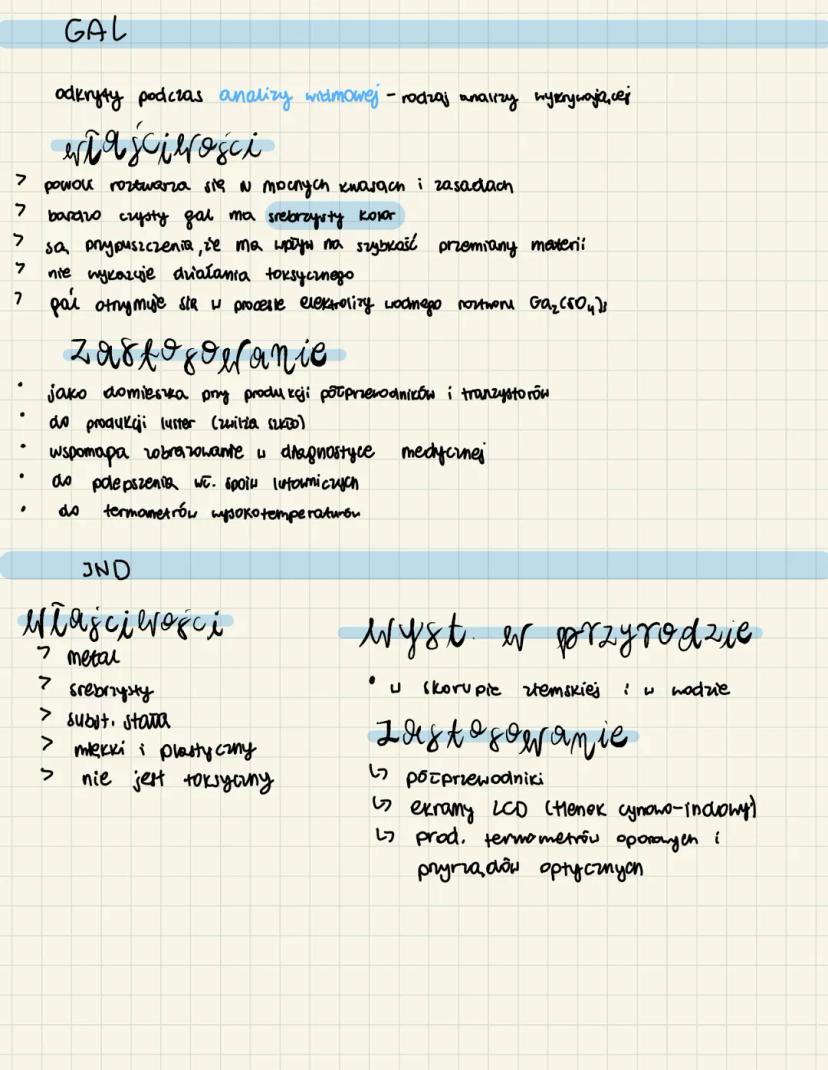 GAL
odkryty podczas analizy widmowej - rodzaj analizy wykrywającej
właściwości
> powoli roztwarza się w mocnych kwasach i zasadach
> bardzo czysty gal ma srebrzysty kolor
> są przypuszczenia, że ma wpływ na szybkość przemiany materii
> nie wykazuje działania toksycznego
> gal otrzymuje się w procesie elektrolizy wodnego roztworu Ga₂(SO₄)₃
Zastosowanie
• jako domieszka przy produkcji półprzewodników i tranzystorów
• do produkcji luster (zwilża szkło)
• wspomapa zobrazowanie w diagnostyce medycznej
• do polepszenia wł. spoiw lutowniczych
• do termometrów wysokotemperaturow
IND
Właściwości
> metal
> srebrzysty
> subst. stała
> miękki i plastyczny
> nie jest toksyczny
Wyst. w przyrodzie
• w skorupie ziemskiej i w wodzie
Zastosowanie
↳ półprzewodniki
↳ ekrany LCD (tlenek cynowo-indowy)
↳ prod. termometrów oporowych i
przyrządów optycznych